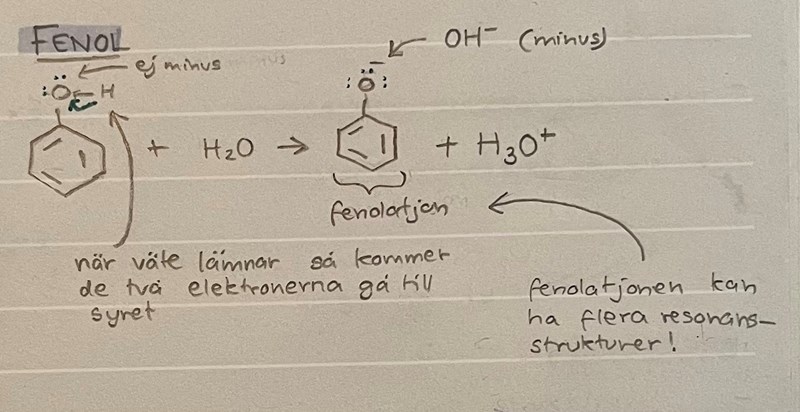 FENOL
ej minus
OH⁻ (minus)
:Ö–H
:Ö:⁻
+ H₂O → + H₃O⁺
fenolatjon
när väte lämnar så kommer
de två elektronerna gå till
syret
fenolatjonen kan
ha flera resonans-
strukturer!